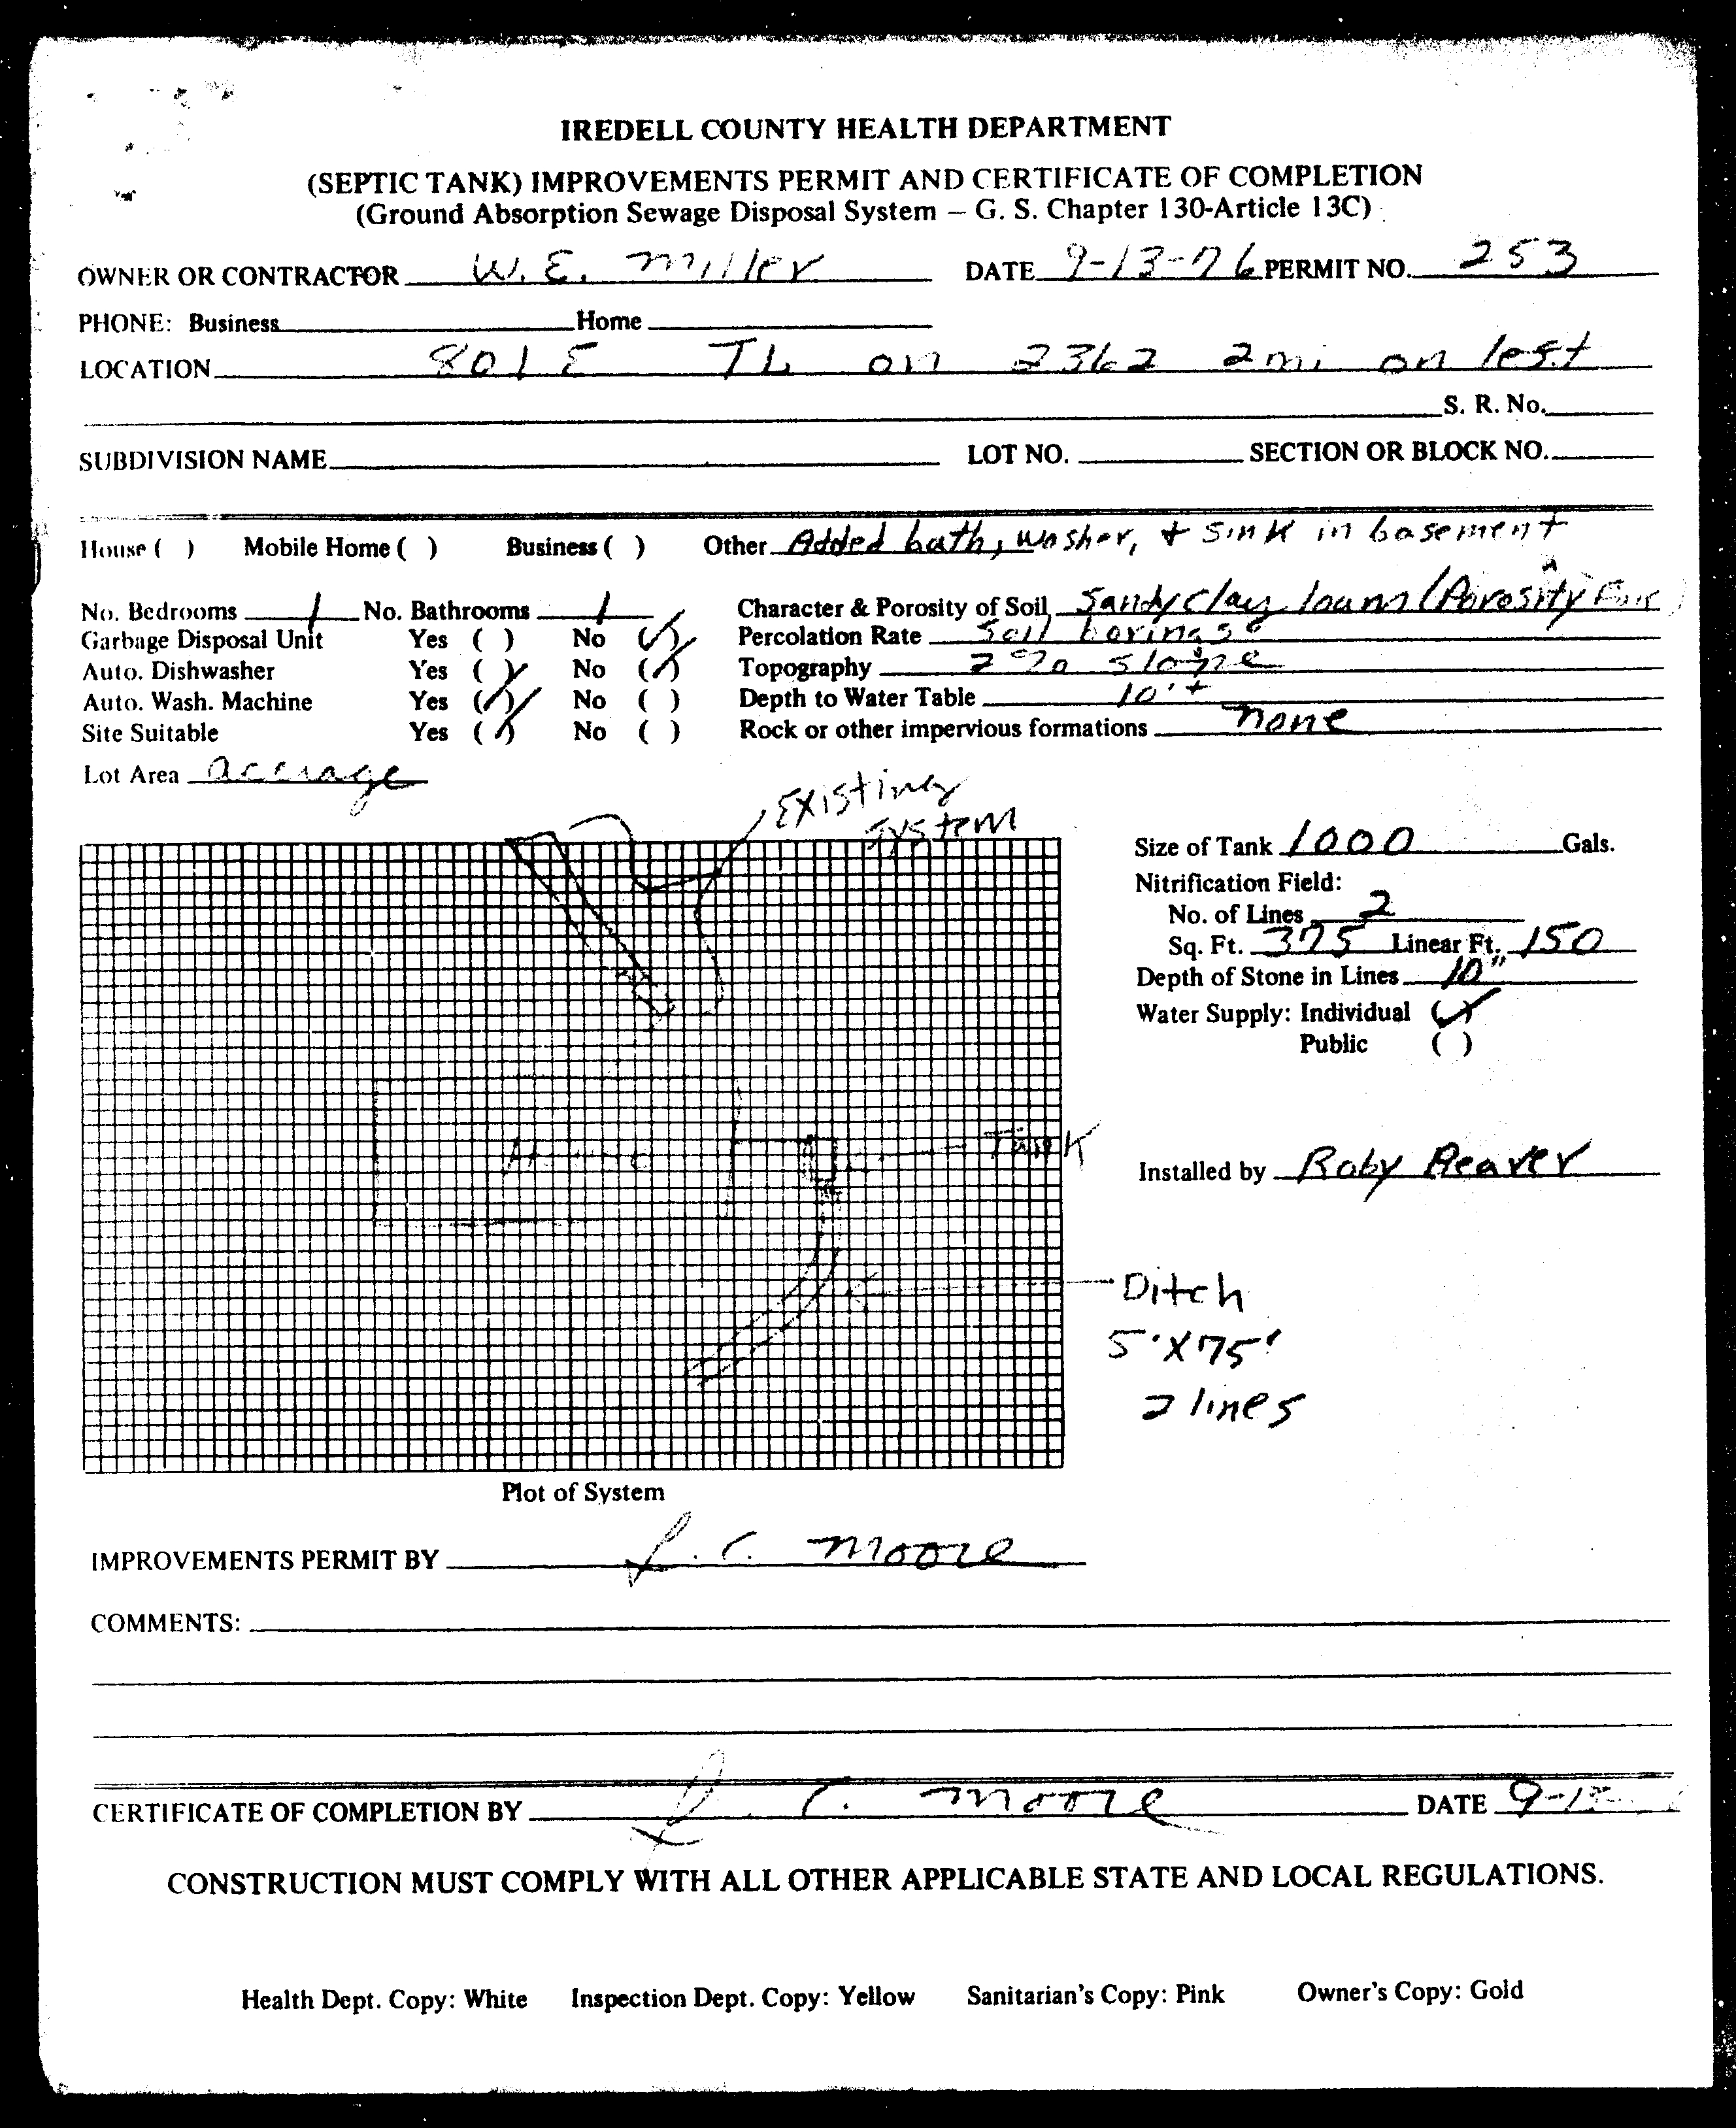 IREDELL COUNTY HEALTH DEPARTMENT
(SEPTIC TANK) IMPROVEMENTS PERMIT AND CERTIFICATE OF COMPLETION
(Ground Absorption Sewage Disposal System – G. S. Chapter 130-Article 13C)
OWNER OR CONTRACTOR W. E. Miller DATE 9-13-76 PERMIT NO. 253
PHONE: Business Home
LOCATION 801 E TL on 2362 2 mi on left
S. R. No.
SUBDIVISION NAME LOT NO. SECTION OR BLOCK NO.
House ( ) Mobile Home ( ) Business ( ) Other Added bath, washer, + sink in basement
No. Bedrooms 1 No. Bathrooms 1 Character & Porosity of Soil Sandy clay loam (Porosity Fair)
Garbage Disposal Unit Yes ( ) No (✓) Percolation Rate Soil borings
Auto. Dishwasher Yes ( ) No (✓) Topography 2% slope
Auto. Wash. Machine Yes (✓) No ( ) Depth to Water Table 10'+
Site Suitable Yes (✓) No ( ) Rock or other impervious formations none
Lot Area accrage
Existing
system
Size of Tank 1000 Gals.
Nitrification Field:
No. of Lines 2
Sq. Ft. 375 Linear Ft. 150
Depth of Stone in Lines 10"
Water Supply: Individual (✓)
Public ( )
Tank
Installed by Roby Beaver
Ditch
5'X75'
2 lines
Plot of System
IMPROVEMENTS PERMIT BY L. C. Moore
COMMENTS:
CERTIFICATE OF COMPLETION BY L. C. Moore DATE
CONSTRUCTION MUST COMPLY WITH ALL OTHER APPLICABLE STATE AND LOCAL REGULATIONS.
Health Dept. Copy: White Inspection Dept. Copy: Yellow Sanitarian's Copy: Pink Owner's Copy: Gold